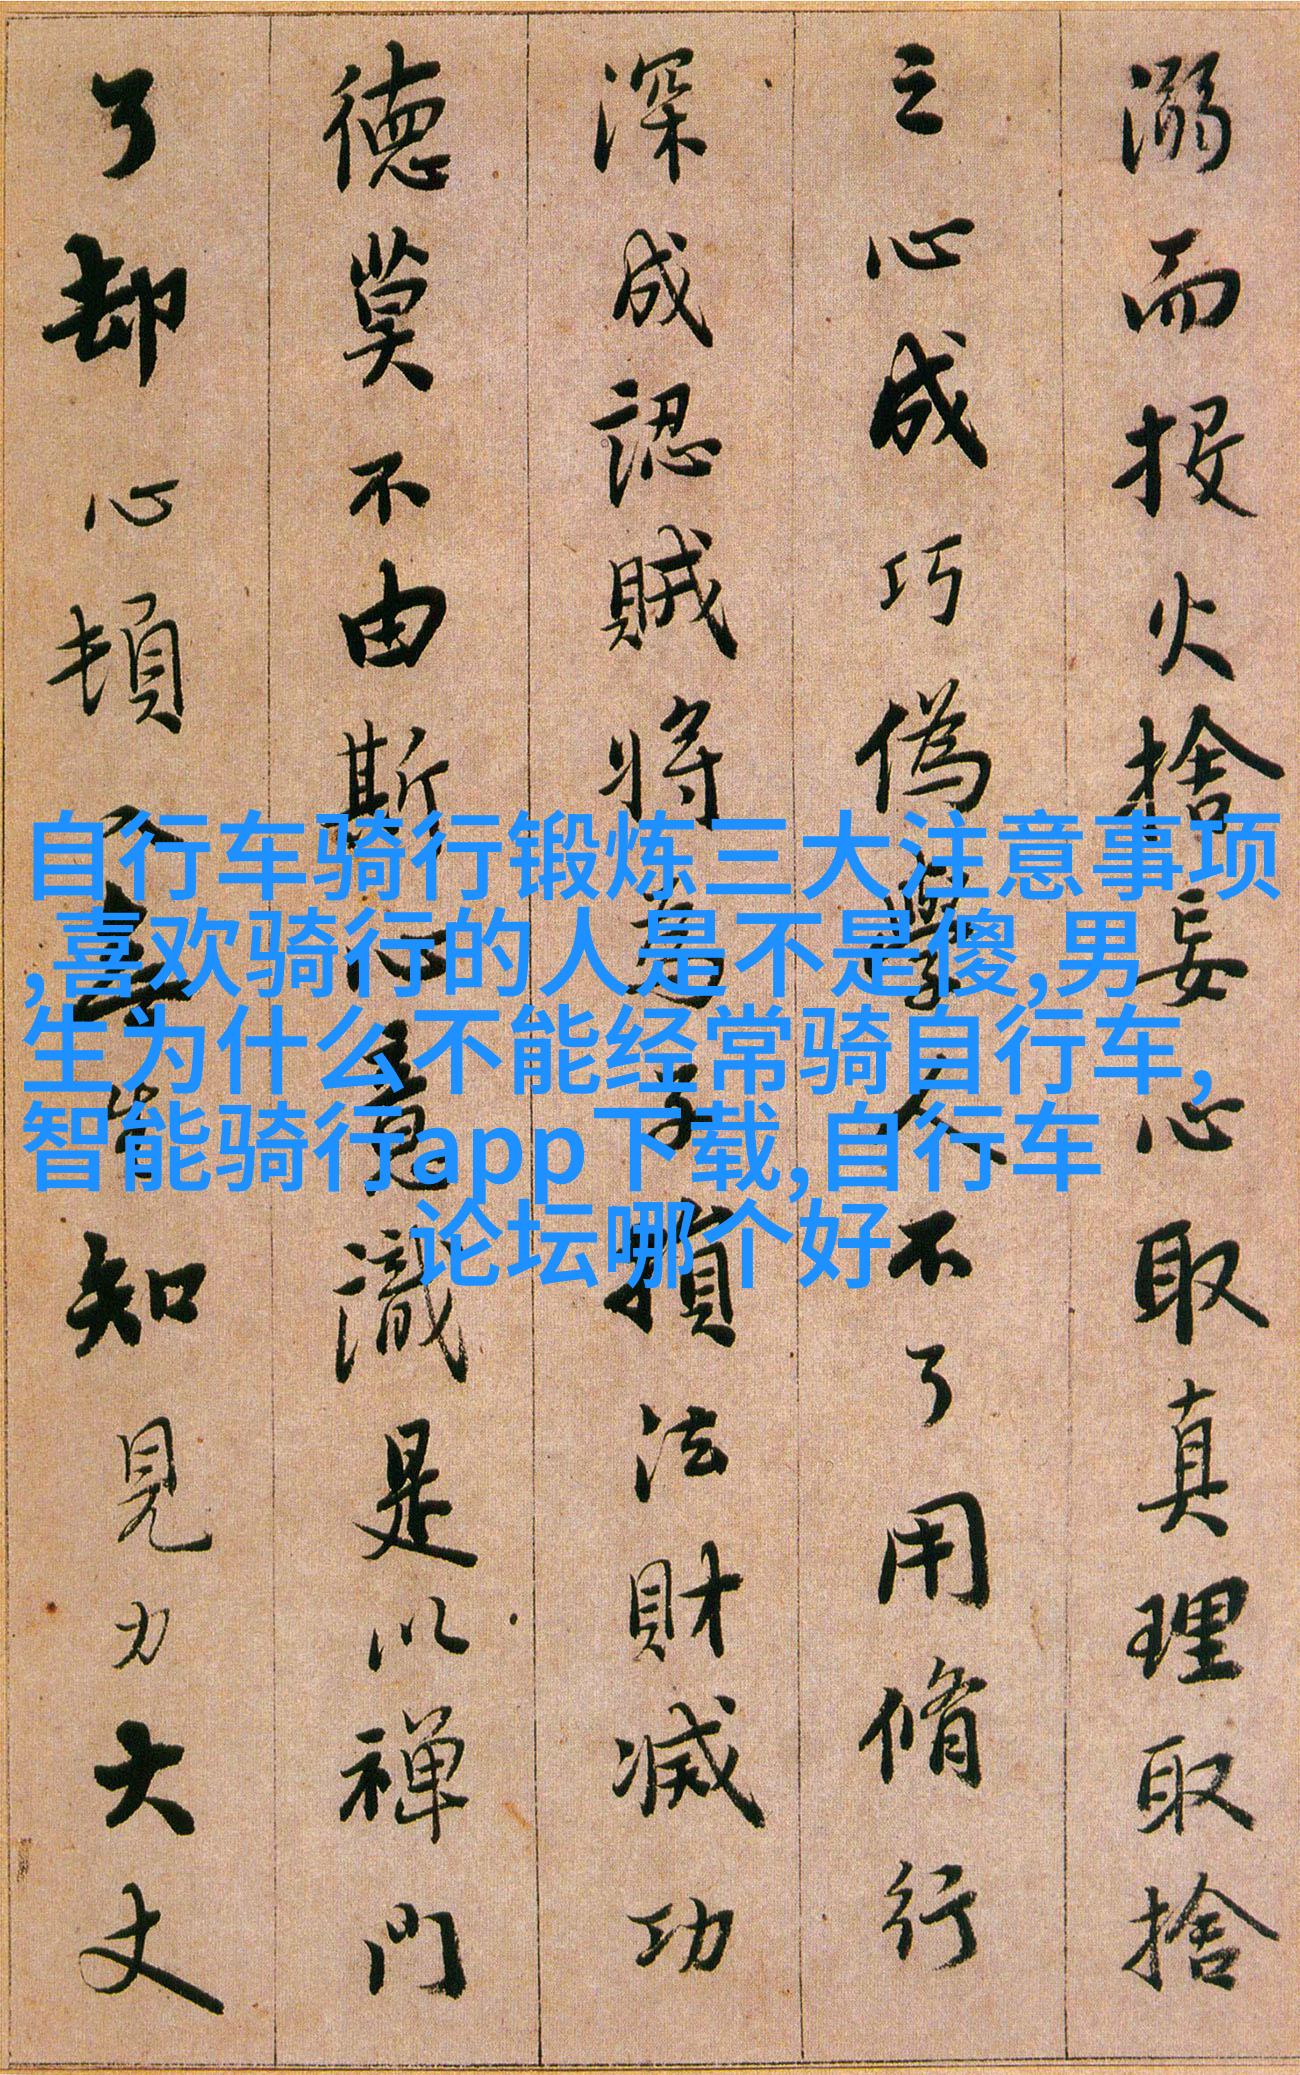 溺而投火捨妄心取真理取捨
之心成巧偽學人不了用脩行
深成認賊将為子損法財滅功
徳莫不由斯心意識是以禅門
了却心頓入無生知見力大丈
自行车骑行锻炼三大注意事项
,喜欢骑行的人是不是傻,男
生为什么不能经常骑自行车,
智能骑行app下载,自行车
论坛哪个好